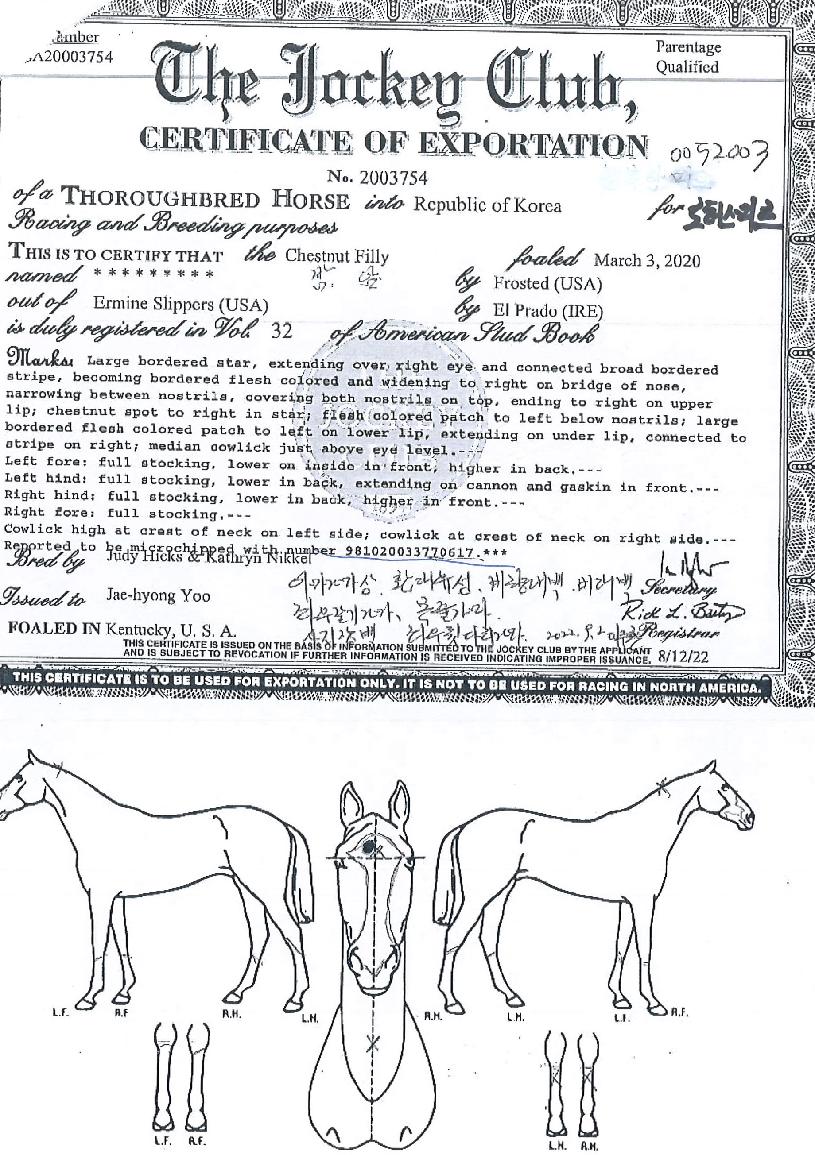 mber
A20003754
Parentage
Qualified
The Jockey Club,
CERTIFICATE OF EXPORTATION
0052003
No. 2003754
of a THOROUGHBRED HORSE into Republic of Korea for
Racing and Breeding purposes
THIS IS TO CERTIFY THAT the Chestnut Filly foaled March 3, 2020
named * * * * * * * * * by Frosted (USA)
out of Ermine Slippers (USA) by El Prado (IRE)
is duly registered in Vol. 32 of American Stud Book
Marks: Large bordered star, extending over right eye and connected broad bordered
stripe, becoming bordered flesh colored and widening to right on bridge of nose,
narrowing between nostrils, covering both nostrils on top, ending to right on upper
lip; chestnut spot to right in star; flesh colored patch to left below nostrils; large
bordered flesh colored patch to left on lower lip, extending on under lip, connected to
stripe on right; median cowlick just above eye level.---
Left fore: full stocking, lower on inside in front, higher in back.---
Left hind: full stocking, lower in back, extending on cannon and gaskin in front.---
Right hind: full stocking, lower in back, higher in front.---
Right fore: full stocking.---
Cowlick high at crest of neck on left side; cowlick at crest of neck on right side.---
Reported to be microchipped with number 981020033770617.***
Bred by Judy Hicks & Kathryn Nikkel
Secretary
Issued to Jae-hyong Yoo
Rick L. Bailey
Registrar
FOALED IN Kentucky, U. S. A.
THIS CERTIFICATE IS ISSUED ON THE BASIS OF INFORMATION SUBMITTED TO THE JOCKEY CLUB BY THE APPLICANT
AND IS SUBJECT TO REVOCATION IF FURTHER INFORMATION IS RECEIVED INDICATING IMPROPER ISSUANCE. 8/12/22
THIS CERTIFICATE IS TO BE USED FOR EXPORTATION ONLY. IT IS NOT TO BE USED FOR RACING IN NORTH AMERICA.
L.F. R.F. R.H. L.H. R.H. L.H. L.F. R.F.
L.F. R.F. L.H. R.H.